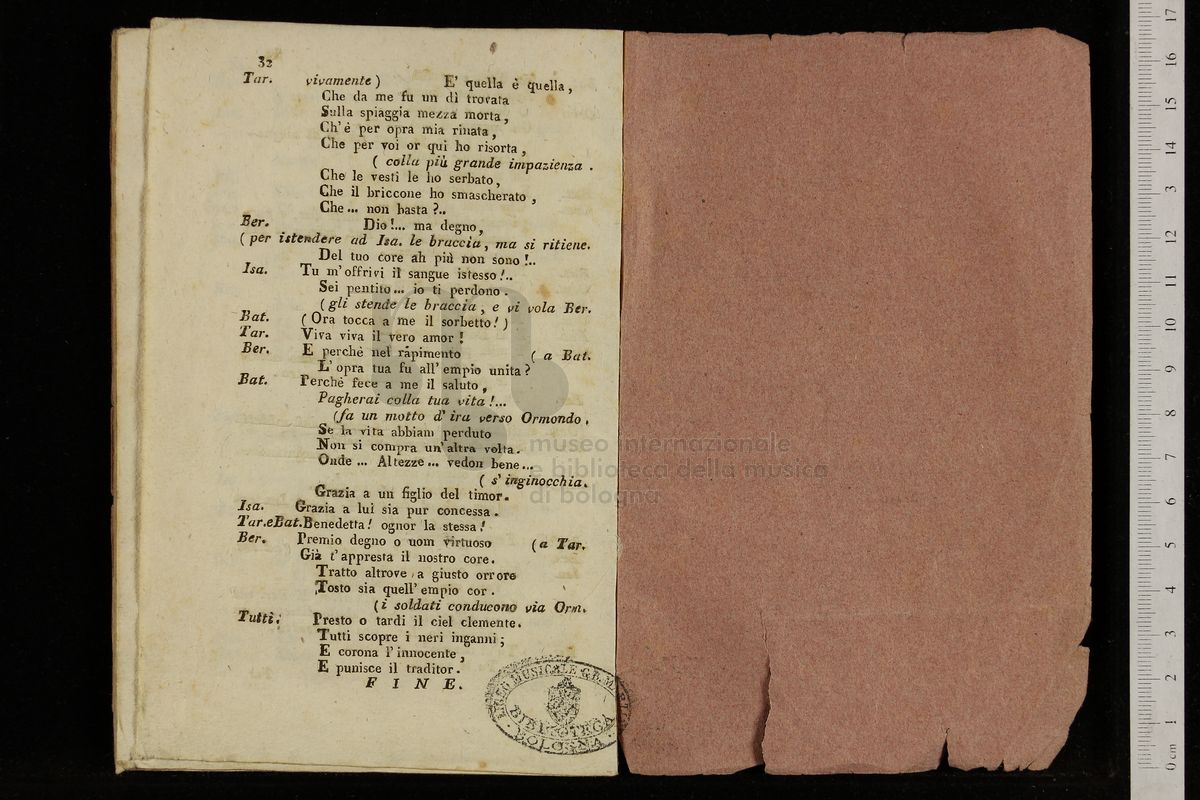 32
Tar. vivamente) E' quella è quella,
Che da me fu un dì trovata
Sulla spiaggia mezza morta,
Ch'è per opra mia rinata,
Che per voi or qui ho risorta,
( colla più grande impazienza.
Che le vesti le ho serbato,
Che il briccone ho smascherato,
Che... non basta?..
Ber. Dio!... ma degno,
( per istendere ad Isa. le braccia, ma si ritiene.
Del tuo core ah più non sono!..
Isa. Tu m'offrivi il sangue istesso!..
Sei pentito... io ti perdono.
(gli stende le braccia, e vi vola Ber.
Bat. (Ora tocca a me il sorbetto!)
Tar. Viva viva il vero amor!
Ber. E perchè nel rapimento ( a Bat.
L'opra tua fu all'empio unita?
Bat. Perchè fece a me il saluto,
Pagherai colla tua vita!...
(fa un motto d'ira verso Ormondo.
Se la vita abbiam perduto
Non si compra un'altra volta.
Onde... Altezze... vedon bene...
( s'inginocchia.
Grazia a un figlio del timor.
Isa. Grazia a lui sia pur concessa.
Tar.eBat. Benedetta! ognor la stessa!
Ber. Premio degno o uom virtuoso (a Tar.
Già t'appresta il nostro core.
Tratto altrove, a giusto orrore
Tosto sia quell'empio cor.
(i soldati conducono via Orm.
Tutti. Presto o tardi il ciel clemente.
Tutti scopre i neri inganni;
E corona l'innocente,
E punisce il traditor.
FINE.
museo internazionale
e biblioteca della musica
di bologna
MUSICALE
BIBLIOTECA
BOLOGNA
0 cm 1 2 3 4 5 6 7 8 9 10 11 12 13 14 15 16 17